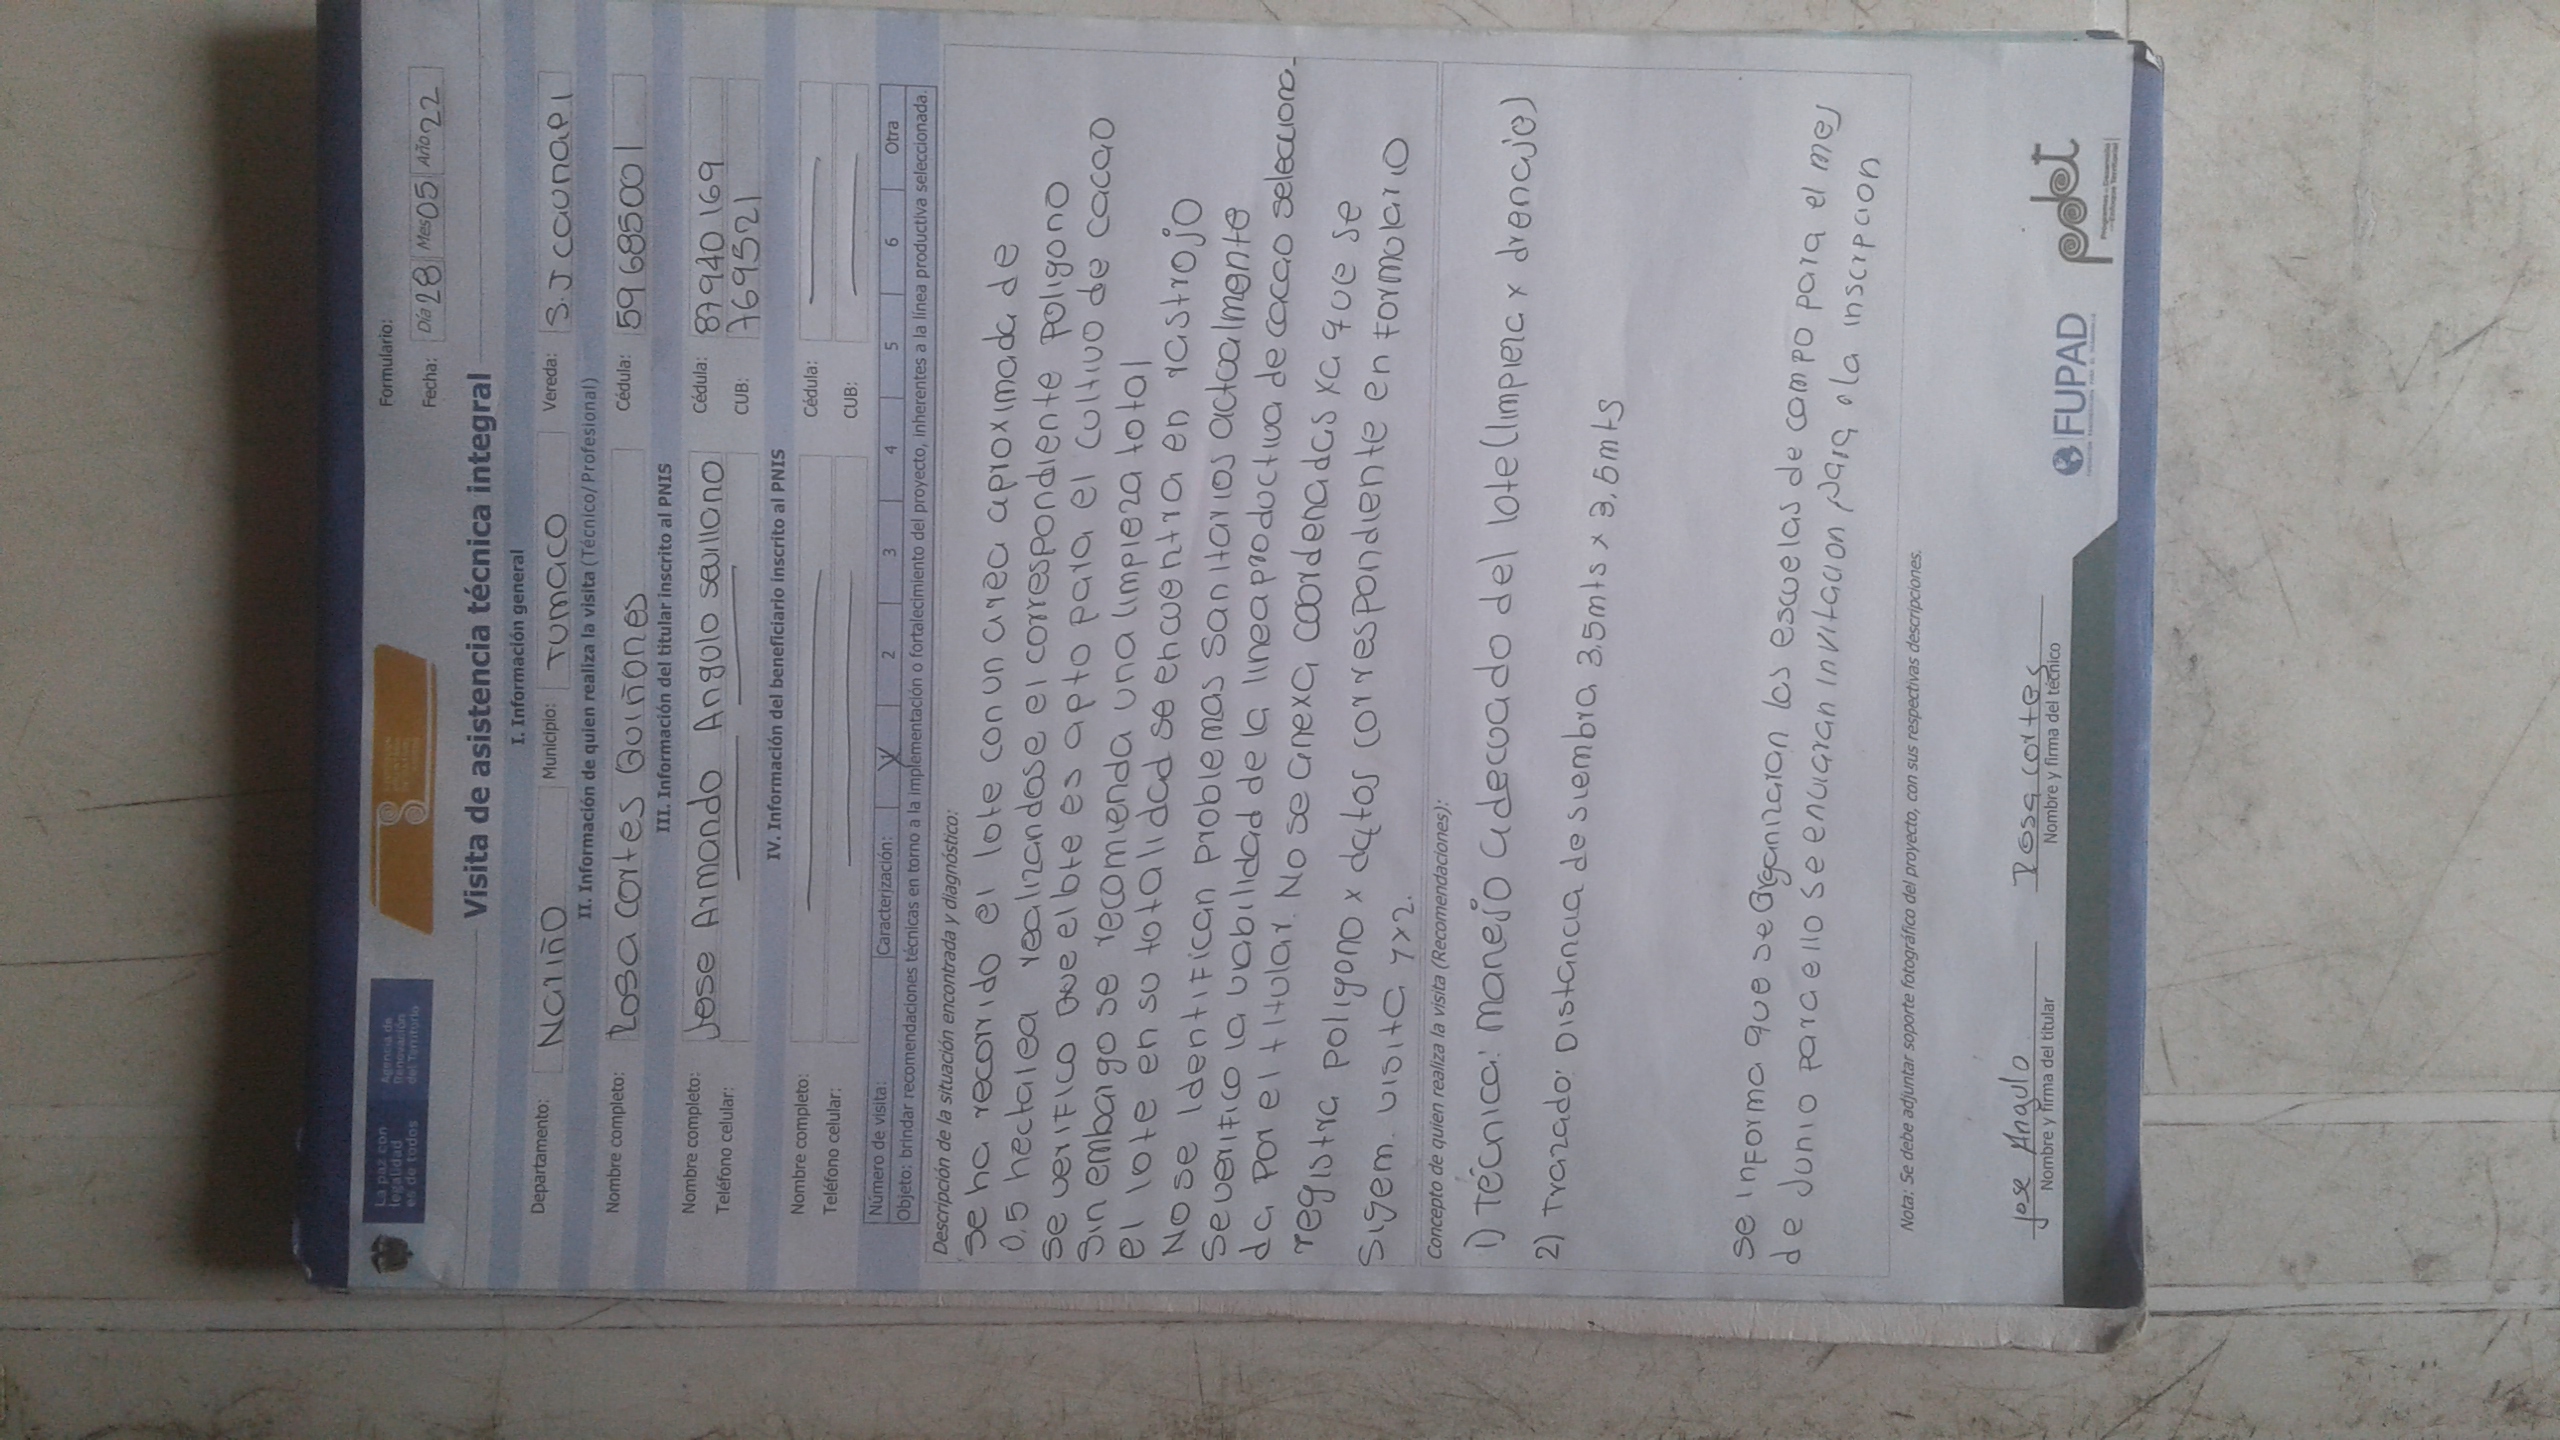 La paz con
legalidad
es de todos
Agencia de
Renovación
del Territorio
Formulario:
Fecha: Día 28 Mes 05 Año 22
Visita de asistencia técnica integral
I. Información general
Departamento: Nariño Municipio: Tumaco Vereda: S.J caunapi
II. Información de quien realiza la visita (Técnico/Profesional)
Nombre completo: Rosa cortes Quiñones Cédula: 59685001
III. Información del titular inscrito al PNIS
Nombre completo: Jose Armando Angulo sevillano Cédula: 87940169
Teléfono celular: CUB: 769521
IV. Información del beneficiario inscrito al PNIS
Nombre completo: Cédula:
Teléfono celular: CUB:
Número de visita: Caracterización: X 2 3 4 5 6 Otra
Objeto: brindar recomendaciones técnicas en torno a la implementación o fortalecimiento del proyecto, inherentes a la línea productiva seleccionada.
Descripción de la situación encontrada y diagnóstico:
se ha recorrido el lote con un area aproximada de
0,5 hectarea realizandose el correspondiente poligono
se verifico que el lote es apto para el cultivo de cacao
Sin embargo se recomienda una limpieza total
el lote en su totalidad se encuentra en rastrojo
No se identifican problemas sanitarios actualmente
se verifico la viabilidad de la linea productiva de cacao selecciona-
da por el titular. No se anexa coordenadas xa que se
registra poligono x datos correspondiente en formulario
sigem. visita 1 x 2.
Concepto de quien realiza la visita (Recomendaciones):
1) Técnica: manejo adecuado del lote (limpieza x drenajes)
2) Trazado: Distancia de siembra 3,5mts x 3,5mts
se informa que se organizaran las escuelas de campo para el mes
de Junio para ello se enviaran invitacion para la inscripcion
Nota: Se debe adjuntar soporte fotográfico del proyecto, con sus respectivas descripciones.
Jose Angulo Rosa cortes
Nombre y firma del titular Nombre y firma del técnico
FUPAD pdet